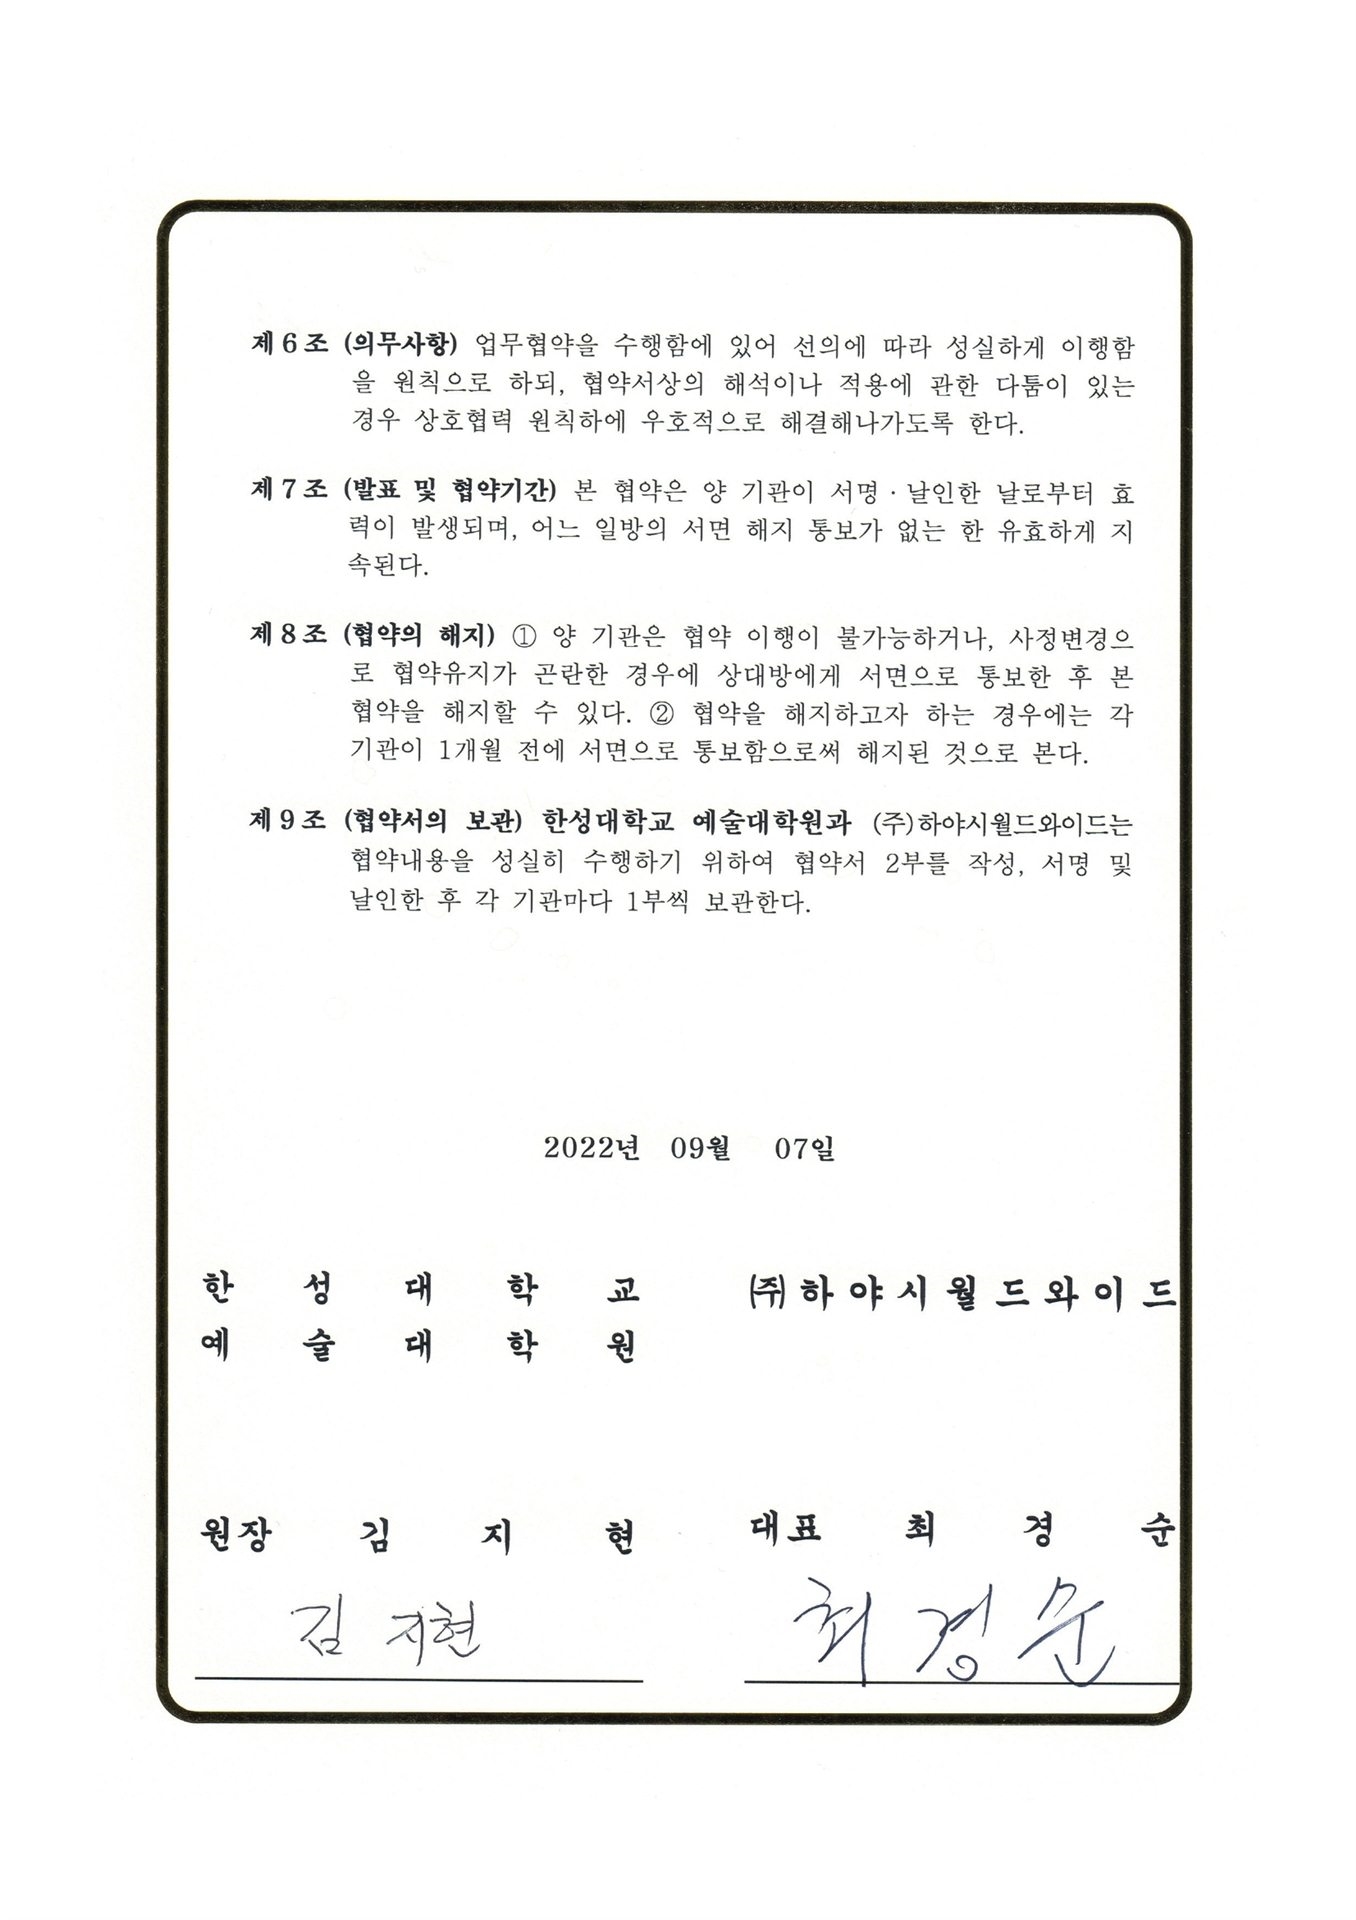 제6조 (의무사항) 업무협약을 수행함에 있어 선의에 따라 성실하게 이행함
을 원칙으로 하되, 협약서상의 해석이나 적용에 관한 다툼이 있는
경우 상호협력 원칙하에 우호적으로 해결해나가도록 한다.
제7조 (발표 및 협약기간) 본 협약은 양 기관이 서명·날인한 날로부터 효
력이 발생되며, 어느 일방의 서면 해지 통보가 없는 한 유효하게 지
속된다.
제8조 (협약의 해지) ① 양 기관은 협약 이행이 불가능하거나, 사정변경으
로 협약유지가 곤란한 경우에 상대방에게 서면으로 통보한 후 본
협약을 해지할 수 있다. ② 협약을 해지하고자 하는 경우에는 각
기관이 1개월 전에 서면으로 통보함으로써 해지된 것으로 본다.
제9조 (협약서의 보관) 한성대학교 예술대학원과 (주)하야시월드와이드는
협약내용을 성실히 수행하기 위하여 협약서 2부를 작성, 서명 및
날인한 후 각 기관마다 1부씩 보관한다.
2022년 09월 07일
한 성 대 학 교
예 술 대 학 원
㈜하야시월드와이드
원장 김 지 현
대표 최 경 순
김 지현
최 경 순